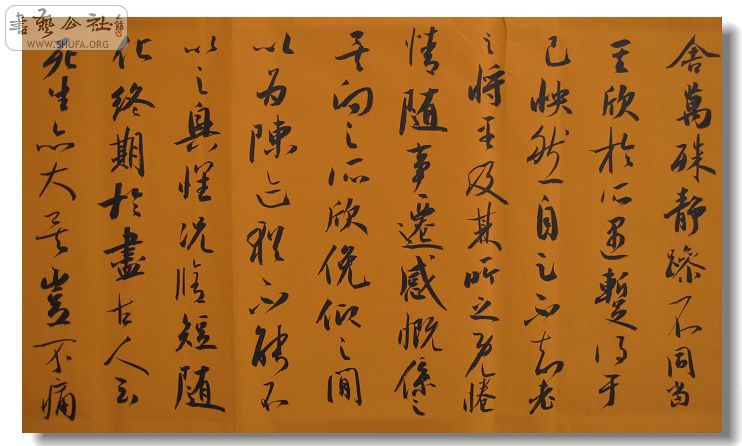 書藝公社
WWW.SHUFA.ORG
舍萬殊靜躁不同當
其欣於所遇暫得于
己怏然自足不知老
之將至及其所之既惓
情隨事遷感慨係之
矣向之所欣俛仰之間
以為陳迹猶不能不
以之興懷況脩短隨
化終期於盡古人云
死生亦大矣豈不痛